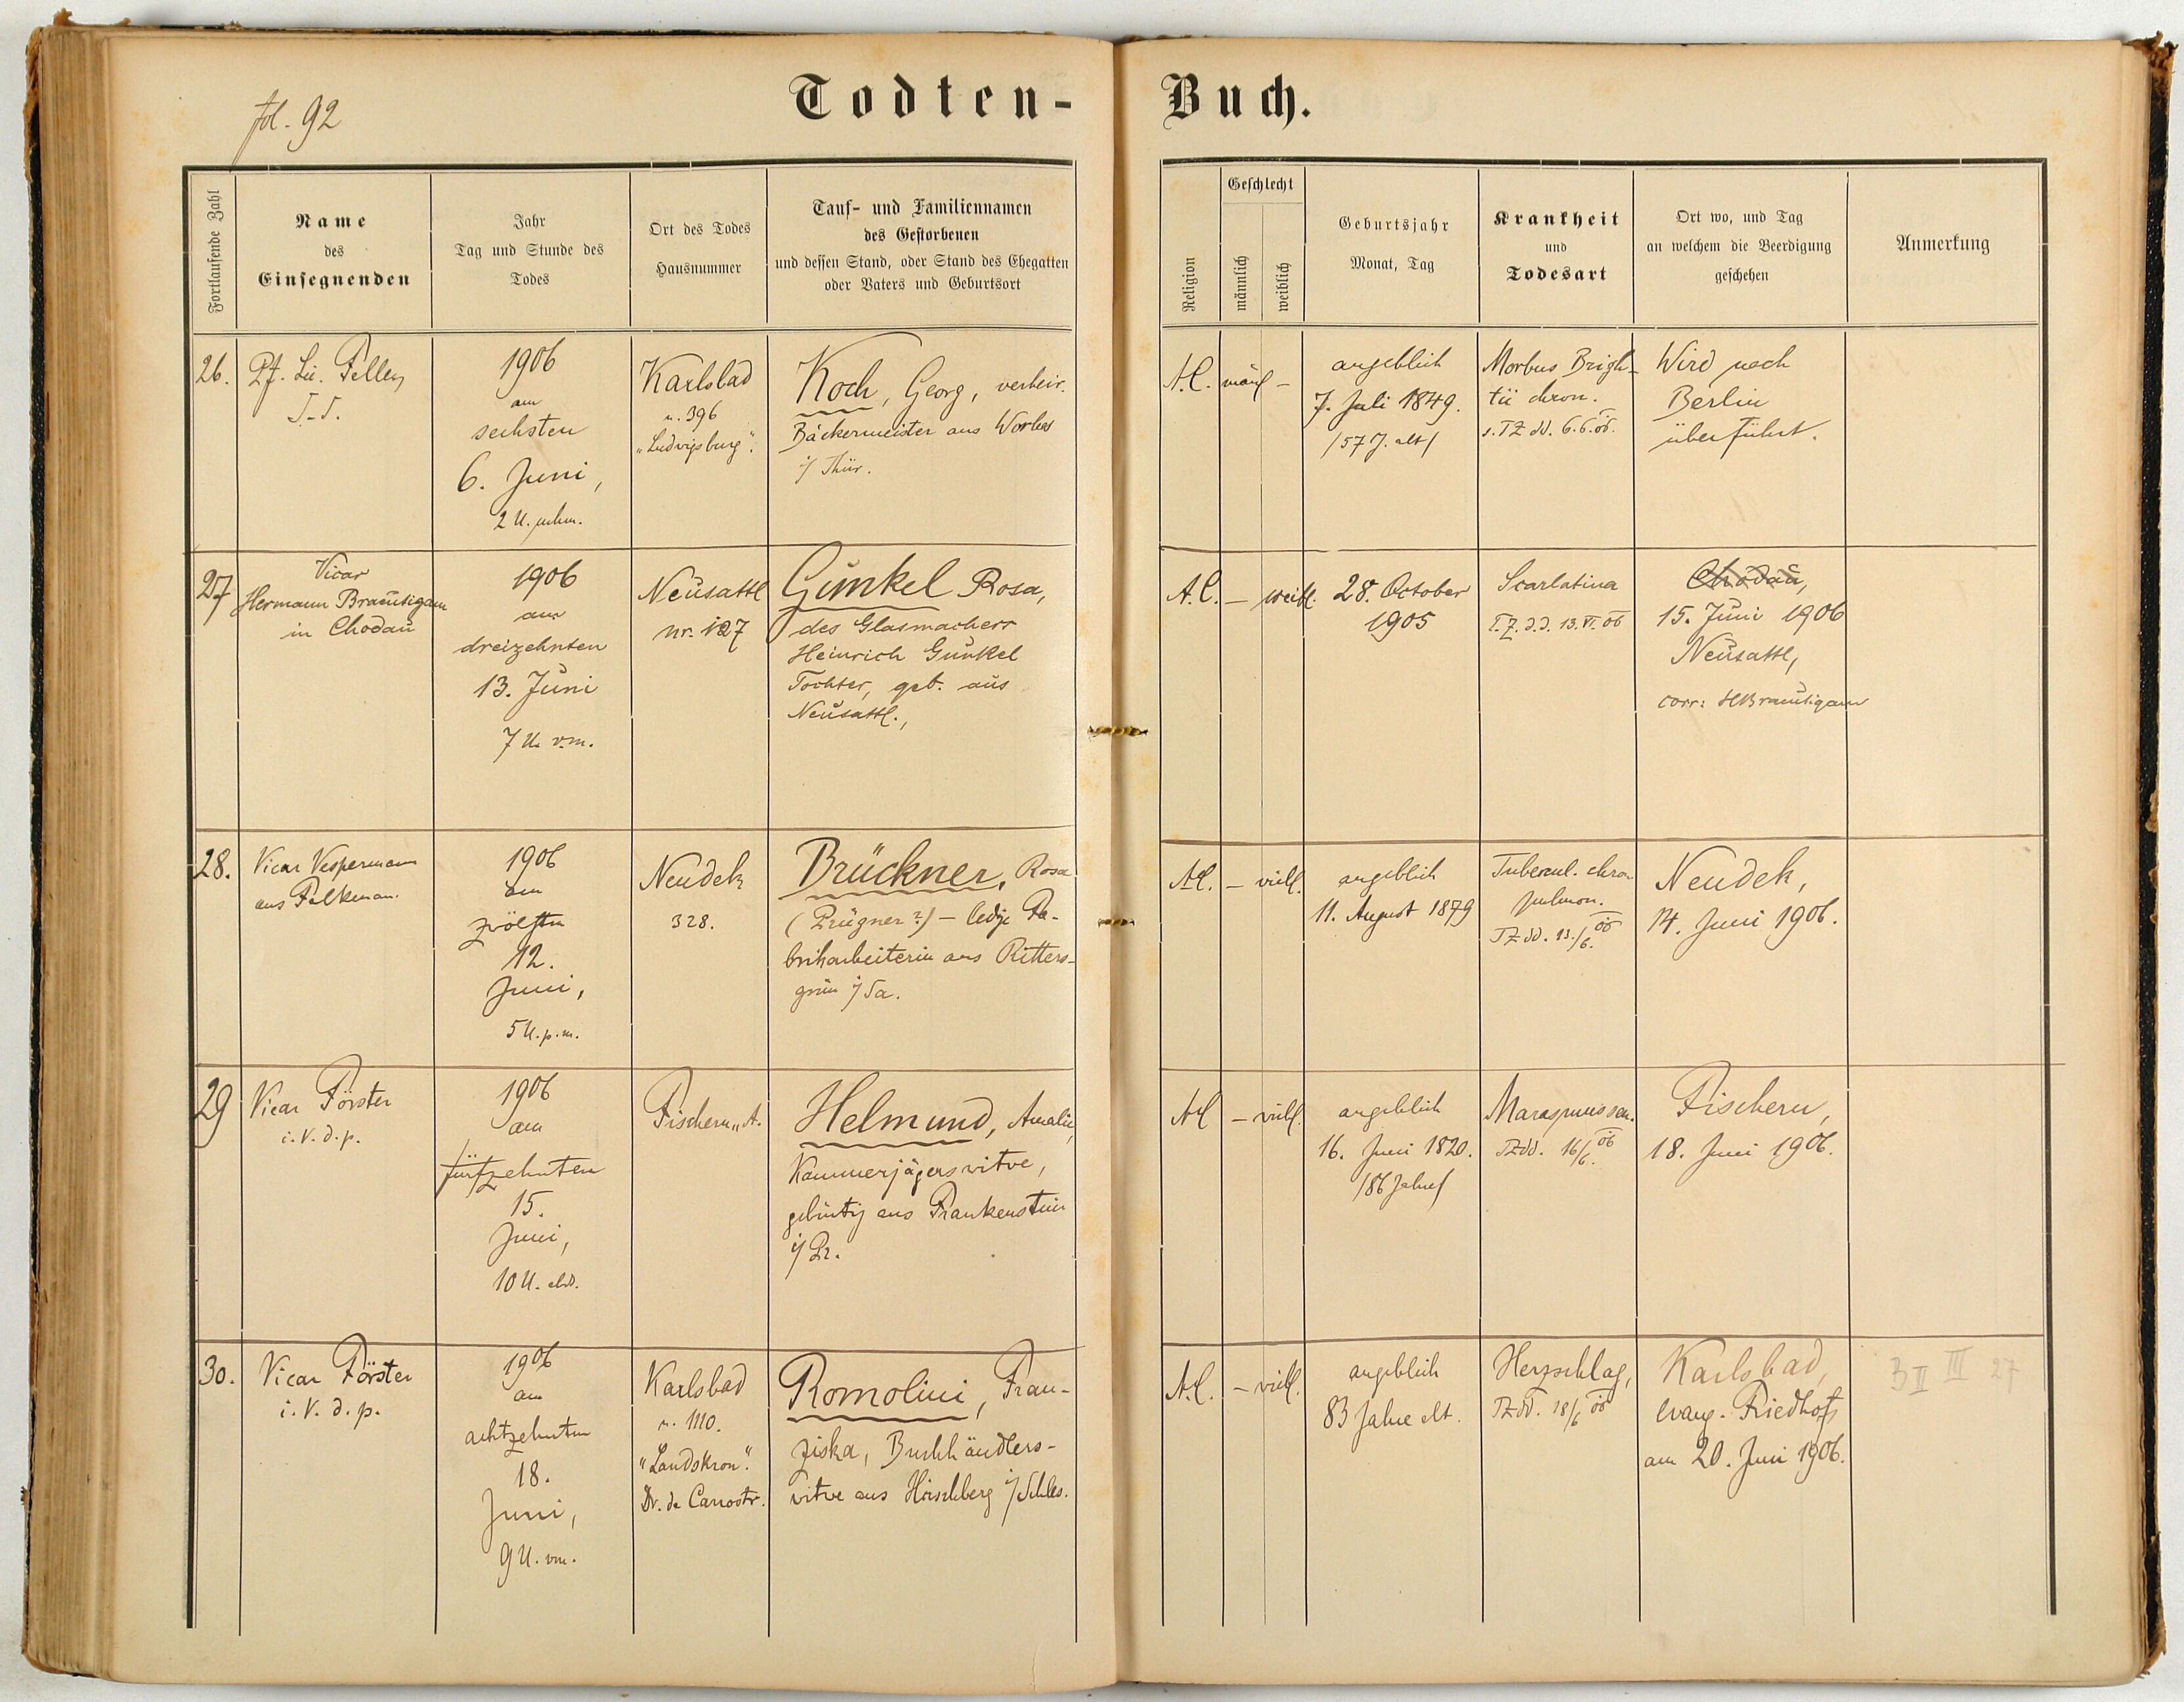 fol. 92
Todten-Buch.
Fortlaufende Zahl
Name
des
Einsegnenden
Jahr
Tag und Stunde des
Todes
Ort des Todes
Hausnummer
Tauf- und Familiennamen
des Gestorbenen
und dessen Stand, oder Stand des Ehegatten
oder Vaters und Geburtsort
Religion
Geschlecht
männlich
weiblich
Geburtsjahr
Monat, Tag
Krankheit
und
Todesart
Ort wo, und Tag
an welchem die Beerdigung
geschehen
Anmerkung
26.
Pf. Lic.
1906
am
sechsten
6. Juni,
2 U. nchm.
Karlsbad
n. 396
„Ludwigsburg".
Koch, Georg, verheir.
Bäckermeister aus Worbis
i/ Thür.
A.C.
männl –
angeblich
7. Juli 1849.
/57 J. alt/
Morbus Brigh-
tii chron.
s. TZ dd. 6.6.06.
Wird nach
Berlin
überführt.
27
Vicar
Hermann Bräutigam
in Chodau
1906
am
dreizehnten
13. Juni
7 U. v.m.
Neusattl
nr. 127
Gunkel Rosa,
des Glasmachers
Heinrich Gunkel
Tochter, geb. aus
Neusattl.,
A.C.
– weibl.
28. October
1905
Scarlatina
T.Z. d.d. 13. VI. 06
Chodau,
15. Juni 1906
Neusattl,
corr: HBräutigam
28.
Vicar Vespermann
aus Falkenau.
1906
am
zwölften
12.
Juni,
5 U. p.m.
Neudek
328.
Brückner, Rosa
(Prügner?) – ledige Fa-
brikarbeiterin aus Ritters-
grün i/Sa.
A.C.
– weibl.
angeblich
11. August 1879
Tubercul. chron
pulmon.
TZ dd. 13./6. 06
Neudek,
14. Juni 1906.
29
Vicar Förster
i. V. d. p.
1906
am
fünfzehnten
15.
Juni,
10 U. abds.
Fischern
Helmund, Amalie,
Kammerjägerswitwe,
gebürtig aus Frankenstein
i/ Pr.
A.C
– weibl.
angeblich
16. Juni 1820.
/86 Jahre/
Marasmus sen.
TZ dd. 16/6. 06
Fischern,
18. Juni 1906.
30.
Vicar Förster
i. V. d. p.
1906
am
achtzehnten
18.
Juni,
9 U. vm.
Karlsbad
n. 1110.
"Landskron".
Dr. de Carrostr.
Romolini, Fran-
ziska, Buchhändlers-
witwe aus Hirschberg i/Schles.
A.C.
– weibl.
angeblich
83 Jahre alt.
Herzschlag,
TZ dd. 18/6 06
Karlsbad,
evang. Friedhof,
am 20. Juni 1906.
3 II III 27